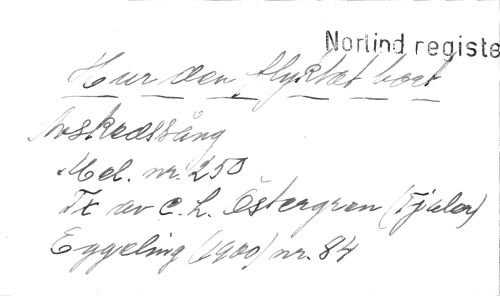 Norlind registe
Hur den flyktat bort
Avskedssång
Mel. nr. 250
Tx av C. L. Östergren (Fjalar)
Eggeling (1900) nr. 84